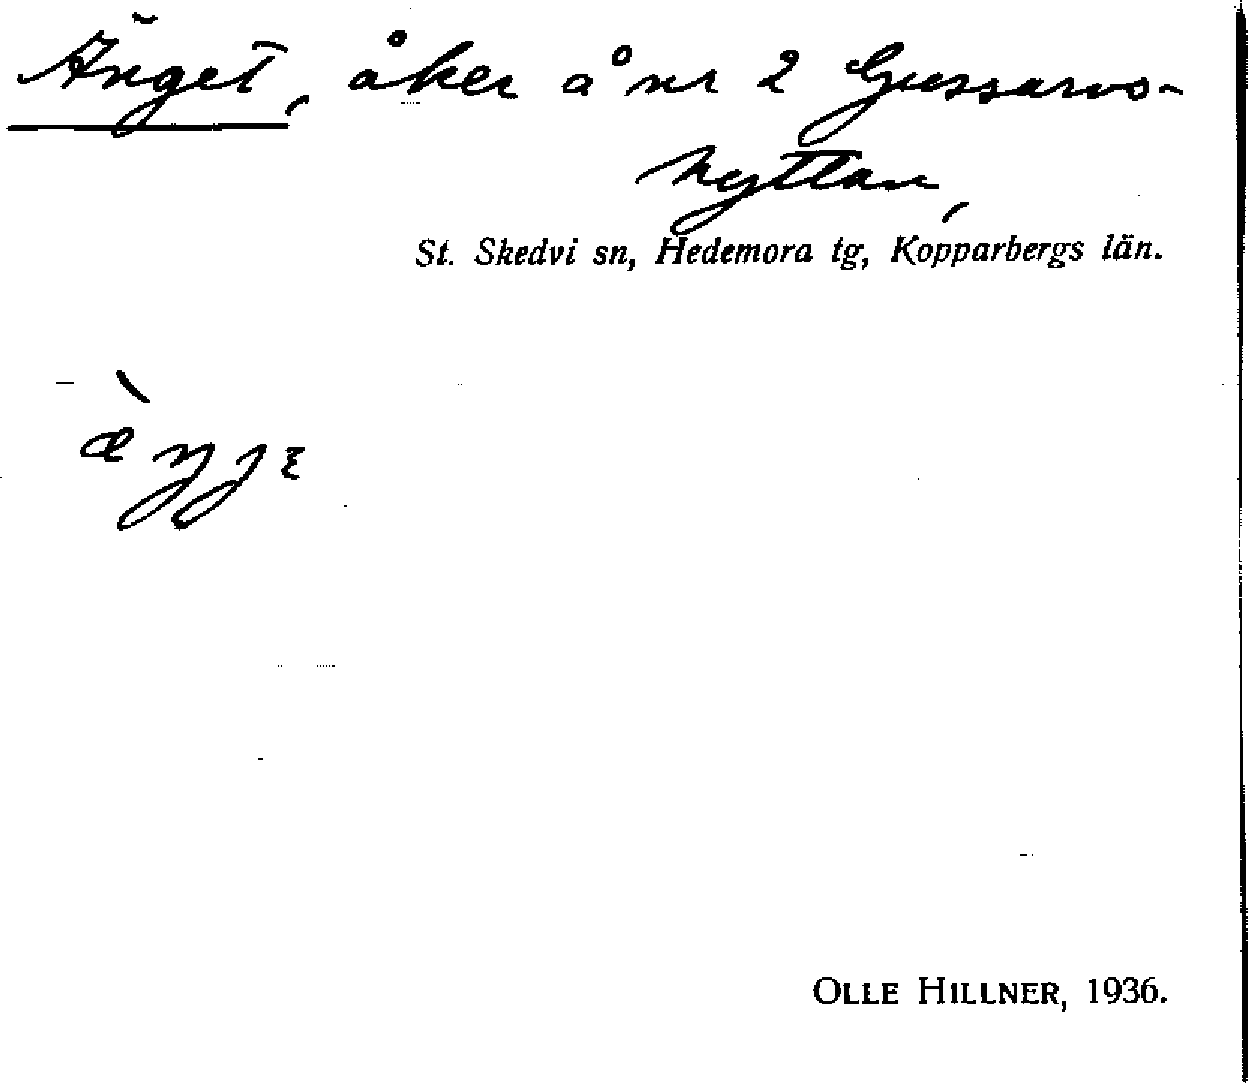 Änget, åker å nr 2 Gussarvs-
hyttan,
St. Skedvi sn, Hedemora tg, Kopparbergs län.
æ̀ŋjɛ
OLLE HILLNER, 1936.